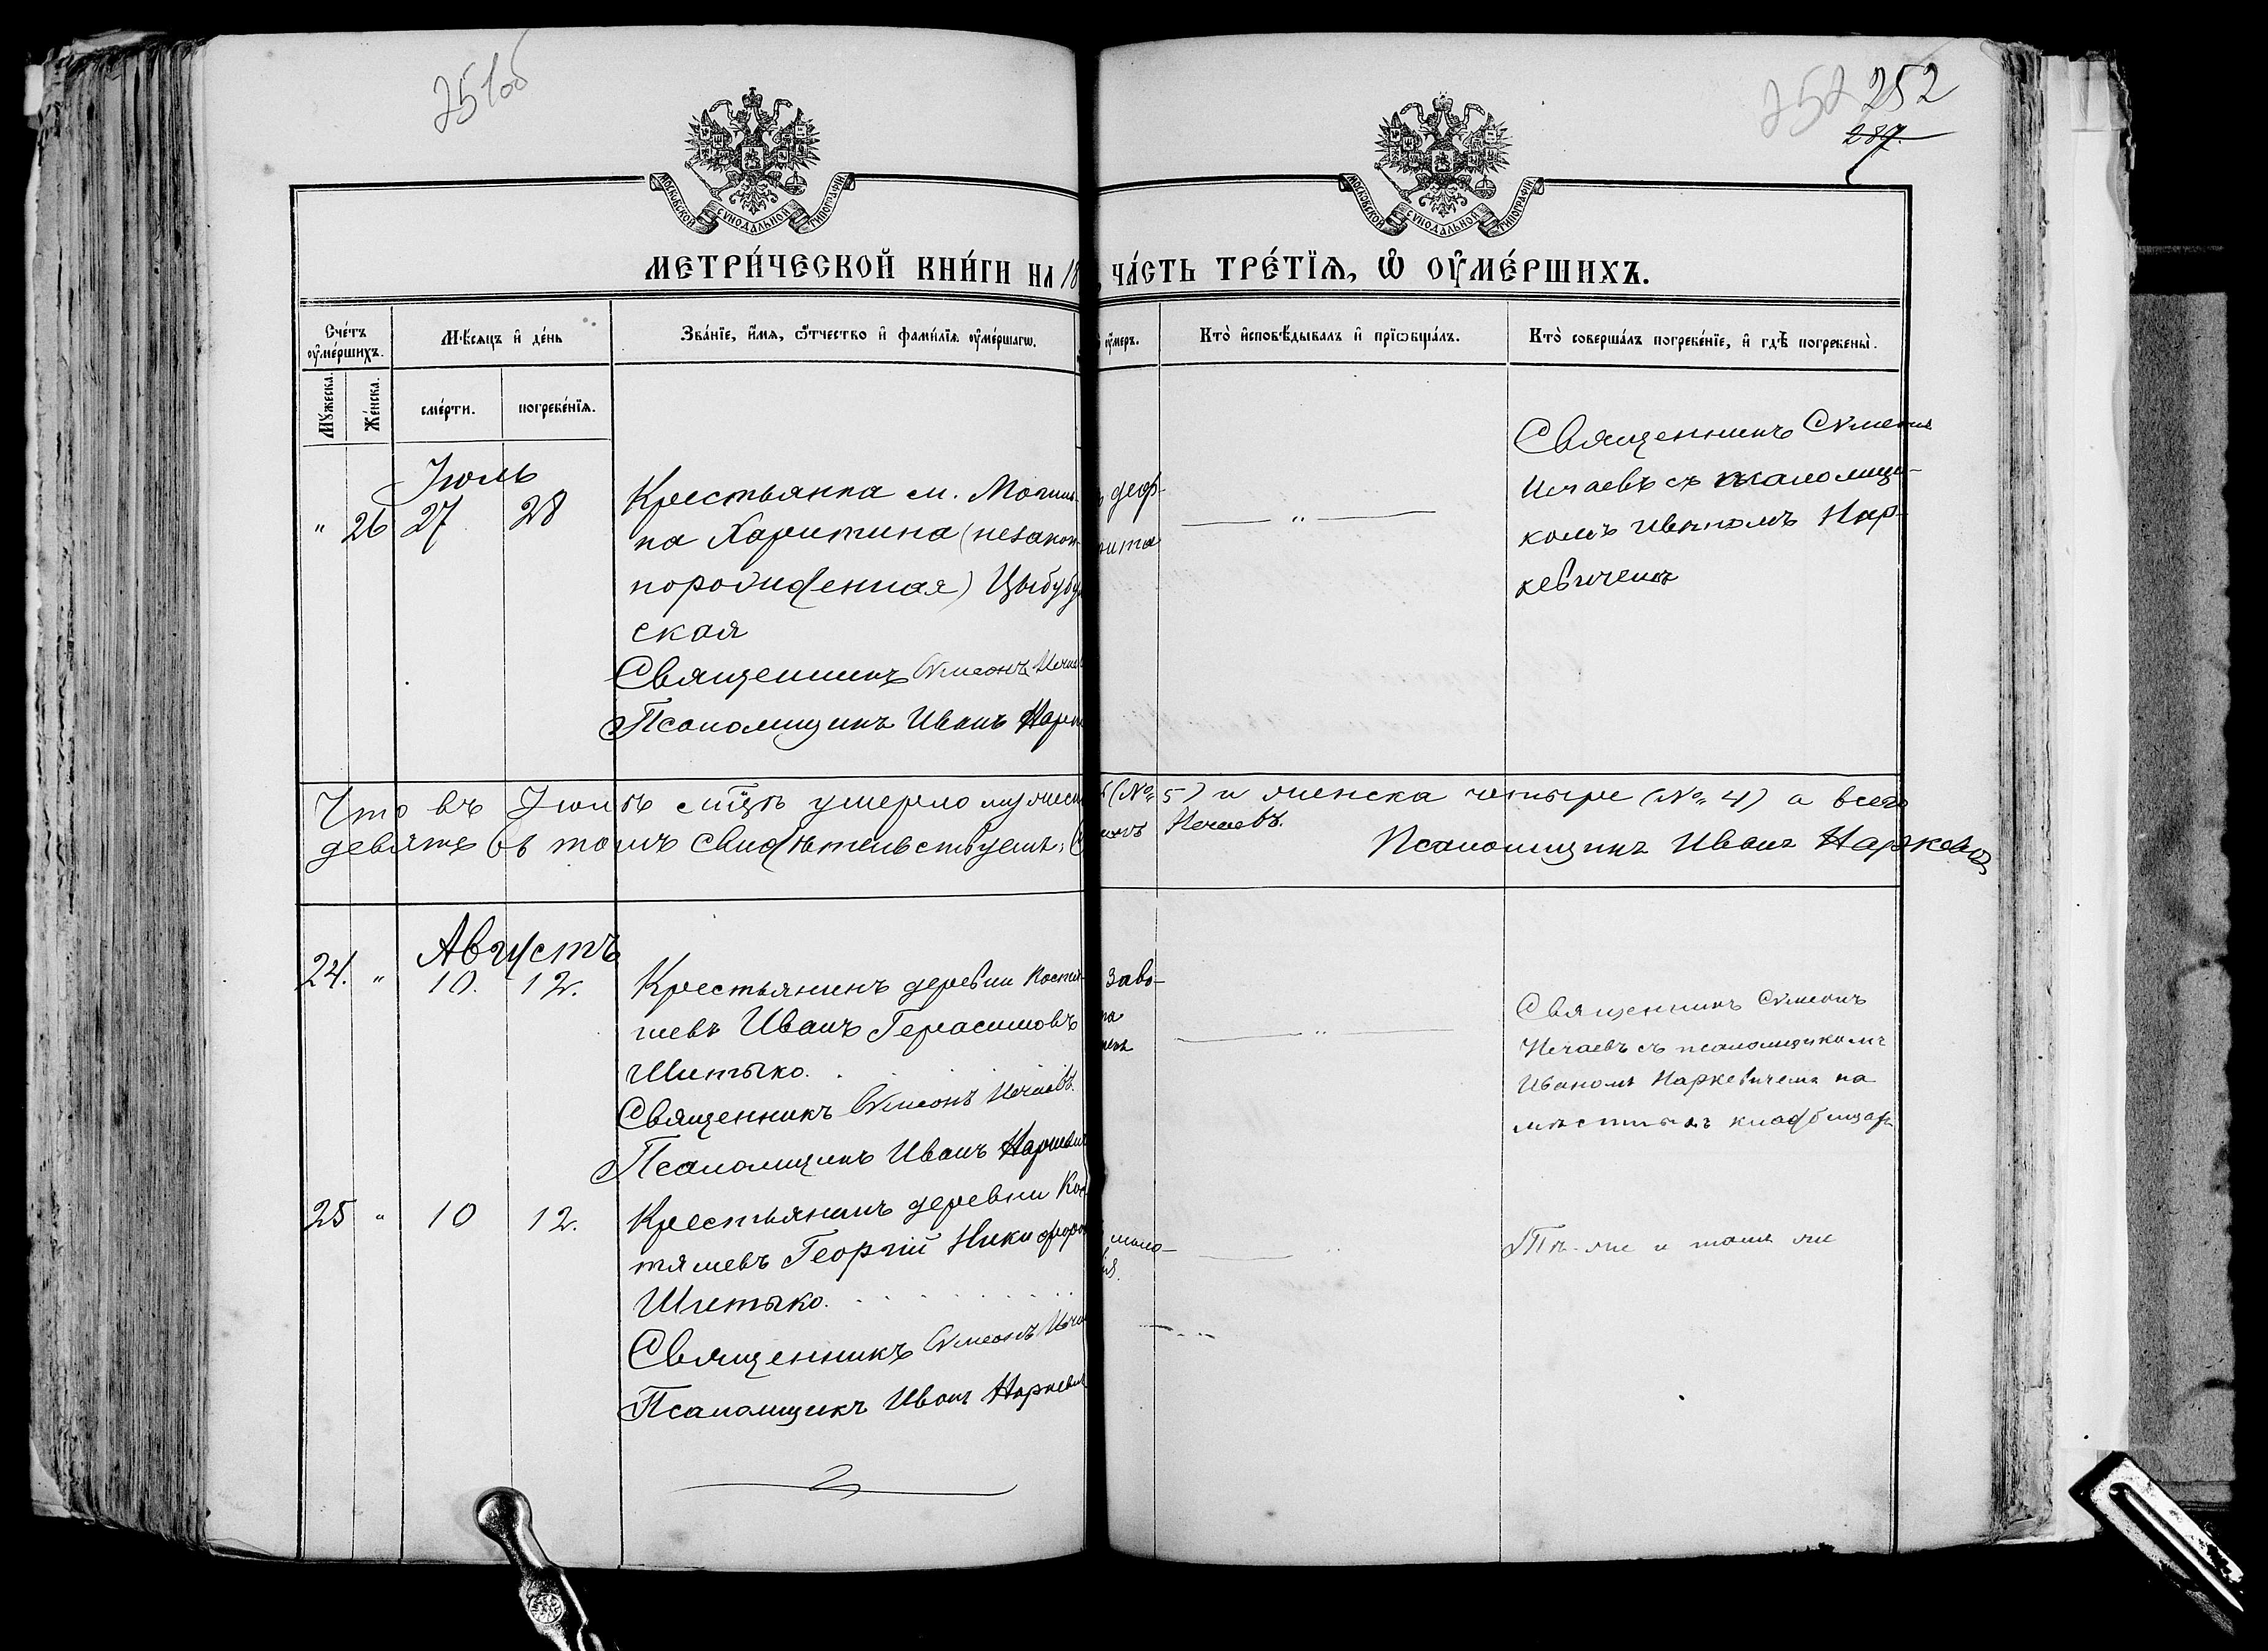 251об
252 252
287.
МОСКОВСКОЙ СѴНОДАЛЬНОЙ ТИПОГРАФІИ
МОСКОВСКОЙ СѴНОДАЛЬНОЙ ТИПОГРАФІИ
МЕТРИ́ЧЕСКОЙ КНИ́ГИ НА 18 ЧА́СТЬ ТРЕ́ТЇѦ, Ѽ ОУ҆МЕ́РШИХЪ.
Сче́тъ оу҆ме́ршихъ.
Мꙋ́жеска.
Же́нска.
Мѣ́сѧцъ и҆ де́нь
сме́рти.
погребе́нїѧ.
Зва́нїе, и҆́мѧ, ѻ҆́тчество и҆ фами́лїѧ оу҆ме́ршагѡ.
оу҆́меръ.
Кто̀ и҆сповѣ́дывалъ и҆ прїѡбща́лъ.
Кто̀ соверша́лъ погребе́нїе, и҆ гдѣ̀ погребены̀.
Іюль
" 26 27 28
Крестьянка м.
на Харитина (незакон-
норожденная) Цыбу
ская
Священникъ Сѵмеонъ
Псаломщикъ Иванъ
— " —
Священникъ Сѵмеонъ
Нечаевъ съ псаломщи-
комъ Иваномъ Нар-
кевичемъ
Что въ Іюлѣ мцѣ умерло (№ 5) и женска четыре (№ 4) а всего
девять въ томъ свидѣтельствуемъ: Нечаевъ.
Псаломщикъ Иванъ Наркевичъ
Августъ
24. " 10. 12.
Крестьянинъ деревни
шевъ Иванъ Герасимовъ
Шитыко.
Священникъ Сѵмеонъ Нечаевъ.
Псаломщикъ Иванъ Наркевич
— " —
Священникъ Сѵмеонъ
Нечаевъ съ псаломщикомъ
Иваномъ Наркевичемъ на
мѣстныхъ кладбищахъ
25 " 10 12.
Крестьянинъ деревни Кос
тяшевъ Георгій Никифоро
Шитыко.
Священникъ Сѵмеонъ Неча
Псаломщикъ Иванъ Наркевич
— " —
Тѣ-же и тамъ же